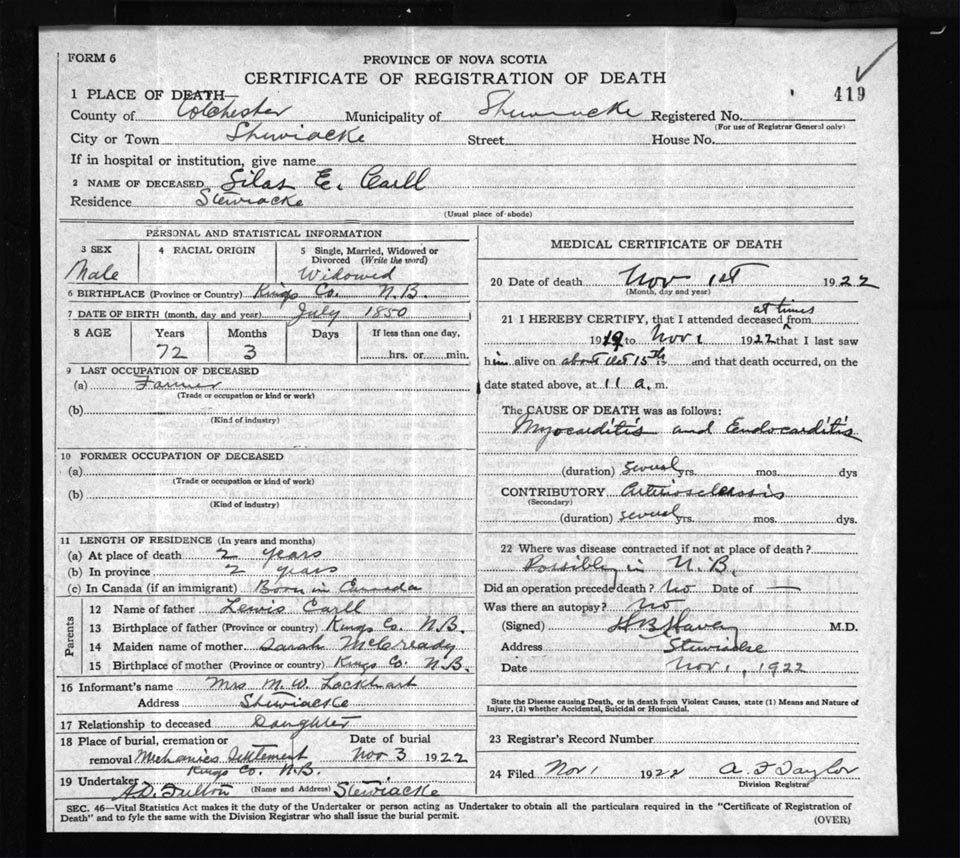 FORM 6
PROVINCE OF NOVA SCOTIA
CERTIFICATE OF REGISTRATION OF DEATH
419
1 PLACE OF DEATH—
County of Colchester Municipality of Shewiacke Registered No.
(For use of Registrar General only)
City or Town Shewiacke Street House No.
If in hospital or institution, give name
2 NAME OF DECEASED Silas E. Carll
Residence Stewiacke
(Usual place of abode)
PERSONAL AND STATISTICAL INFORMATION
3 SEX 4 RACIAL ORIGIN 5 Single, Married, Widowed or
Divorced (Write the word)
Male Widowed
6 BIRTHPLACE (Province or Country) Kings Co. N.B.
7 DATE OF BIRTH (month, day and year) July 1850
8 AGE Years Months Days If less than one day,
72 3 hrs. or min.
9 LAST OCCUPATION OF DECEASED
(a) Farmer
(Trade or occupation or kind or work)
(b)
(Kind of industry)
10 FORMER OCCUPATION OF DECEASED
(a)
(Trade or occupation or kind of work)
(b)
(Kind of industry)
11 LENGTH OF RESIDENCE (In years and months)
(a) At place of death 2 years
(b) In province 2 years
(c) In Canada (if an immigrant) Born in Canada
Parents
12 Name of father Lewis Carll
13 Birthplace of father (Province or country) Kings Co. N.B.
14 Maiden name of mother Sarah McCready
15 Birthplace of mother (Province or country) Kings Co. N.B.
16 Informant's name Mrs M. W. Lockhart
Address Shewiacke
17 Relationship to deceased Daughter
18 Place of burial, cremation or Date of burial
removal Mechanics Settlement Nov 3 1922
Kings Co. N.B.
19 Undertaker
A.D. Fulton (Name and Address) Stewiacke
MEDICAL CERTIFICATE OF DEATH
20 Date of death Nov 1st 1922
(Month, day and year)
at times
21 I HEREBY CERTIFY, that I attended deceased from
1919 to Nov 1 1922 that I last saw
him alive on about Oct 15th and that death occurred, on the
date stated above, at 11 a. m.
The CAUSE OF DEATH was as follows:
Myocarditis and Endocarditis
(duration) several yrs. mos. dys
CONTRIBUTORY Arteriosclerosis
(Secondary)
(duration) several yrs. mos. dys.
22 Where was disease contracted if not at place of death?
Possibly in N.B.
Did an operation precede death? No Date of —
Was there an autopsy? No
(Signed) M.D.
Address Stewiacke
Date Nov 1, 1922
State the Disease causing Death, or in death from Violent Causes, state (1) Means and Nature of
Injury, (2) whether Accidental, Suicidal or Homicidal.
23 Registrar's Record Number
24 Filed Nov 1 1922 A F Taylor
Division Registrar
SEC. 46—Vital Statistics Act makes it the duty of the Undertaker or person acting as Undertaker to obtain all the particulars required in the "Certificate of Registration of
Death" and to fyle the same with the Division Registrar who shall issue the burial permit.
(OVER)